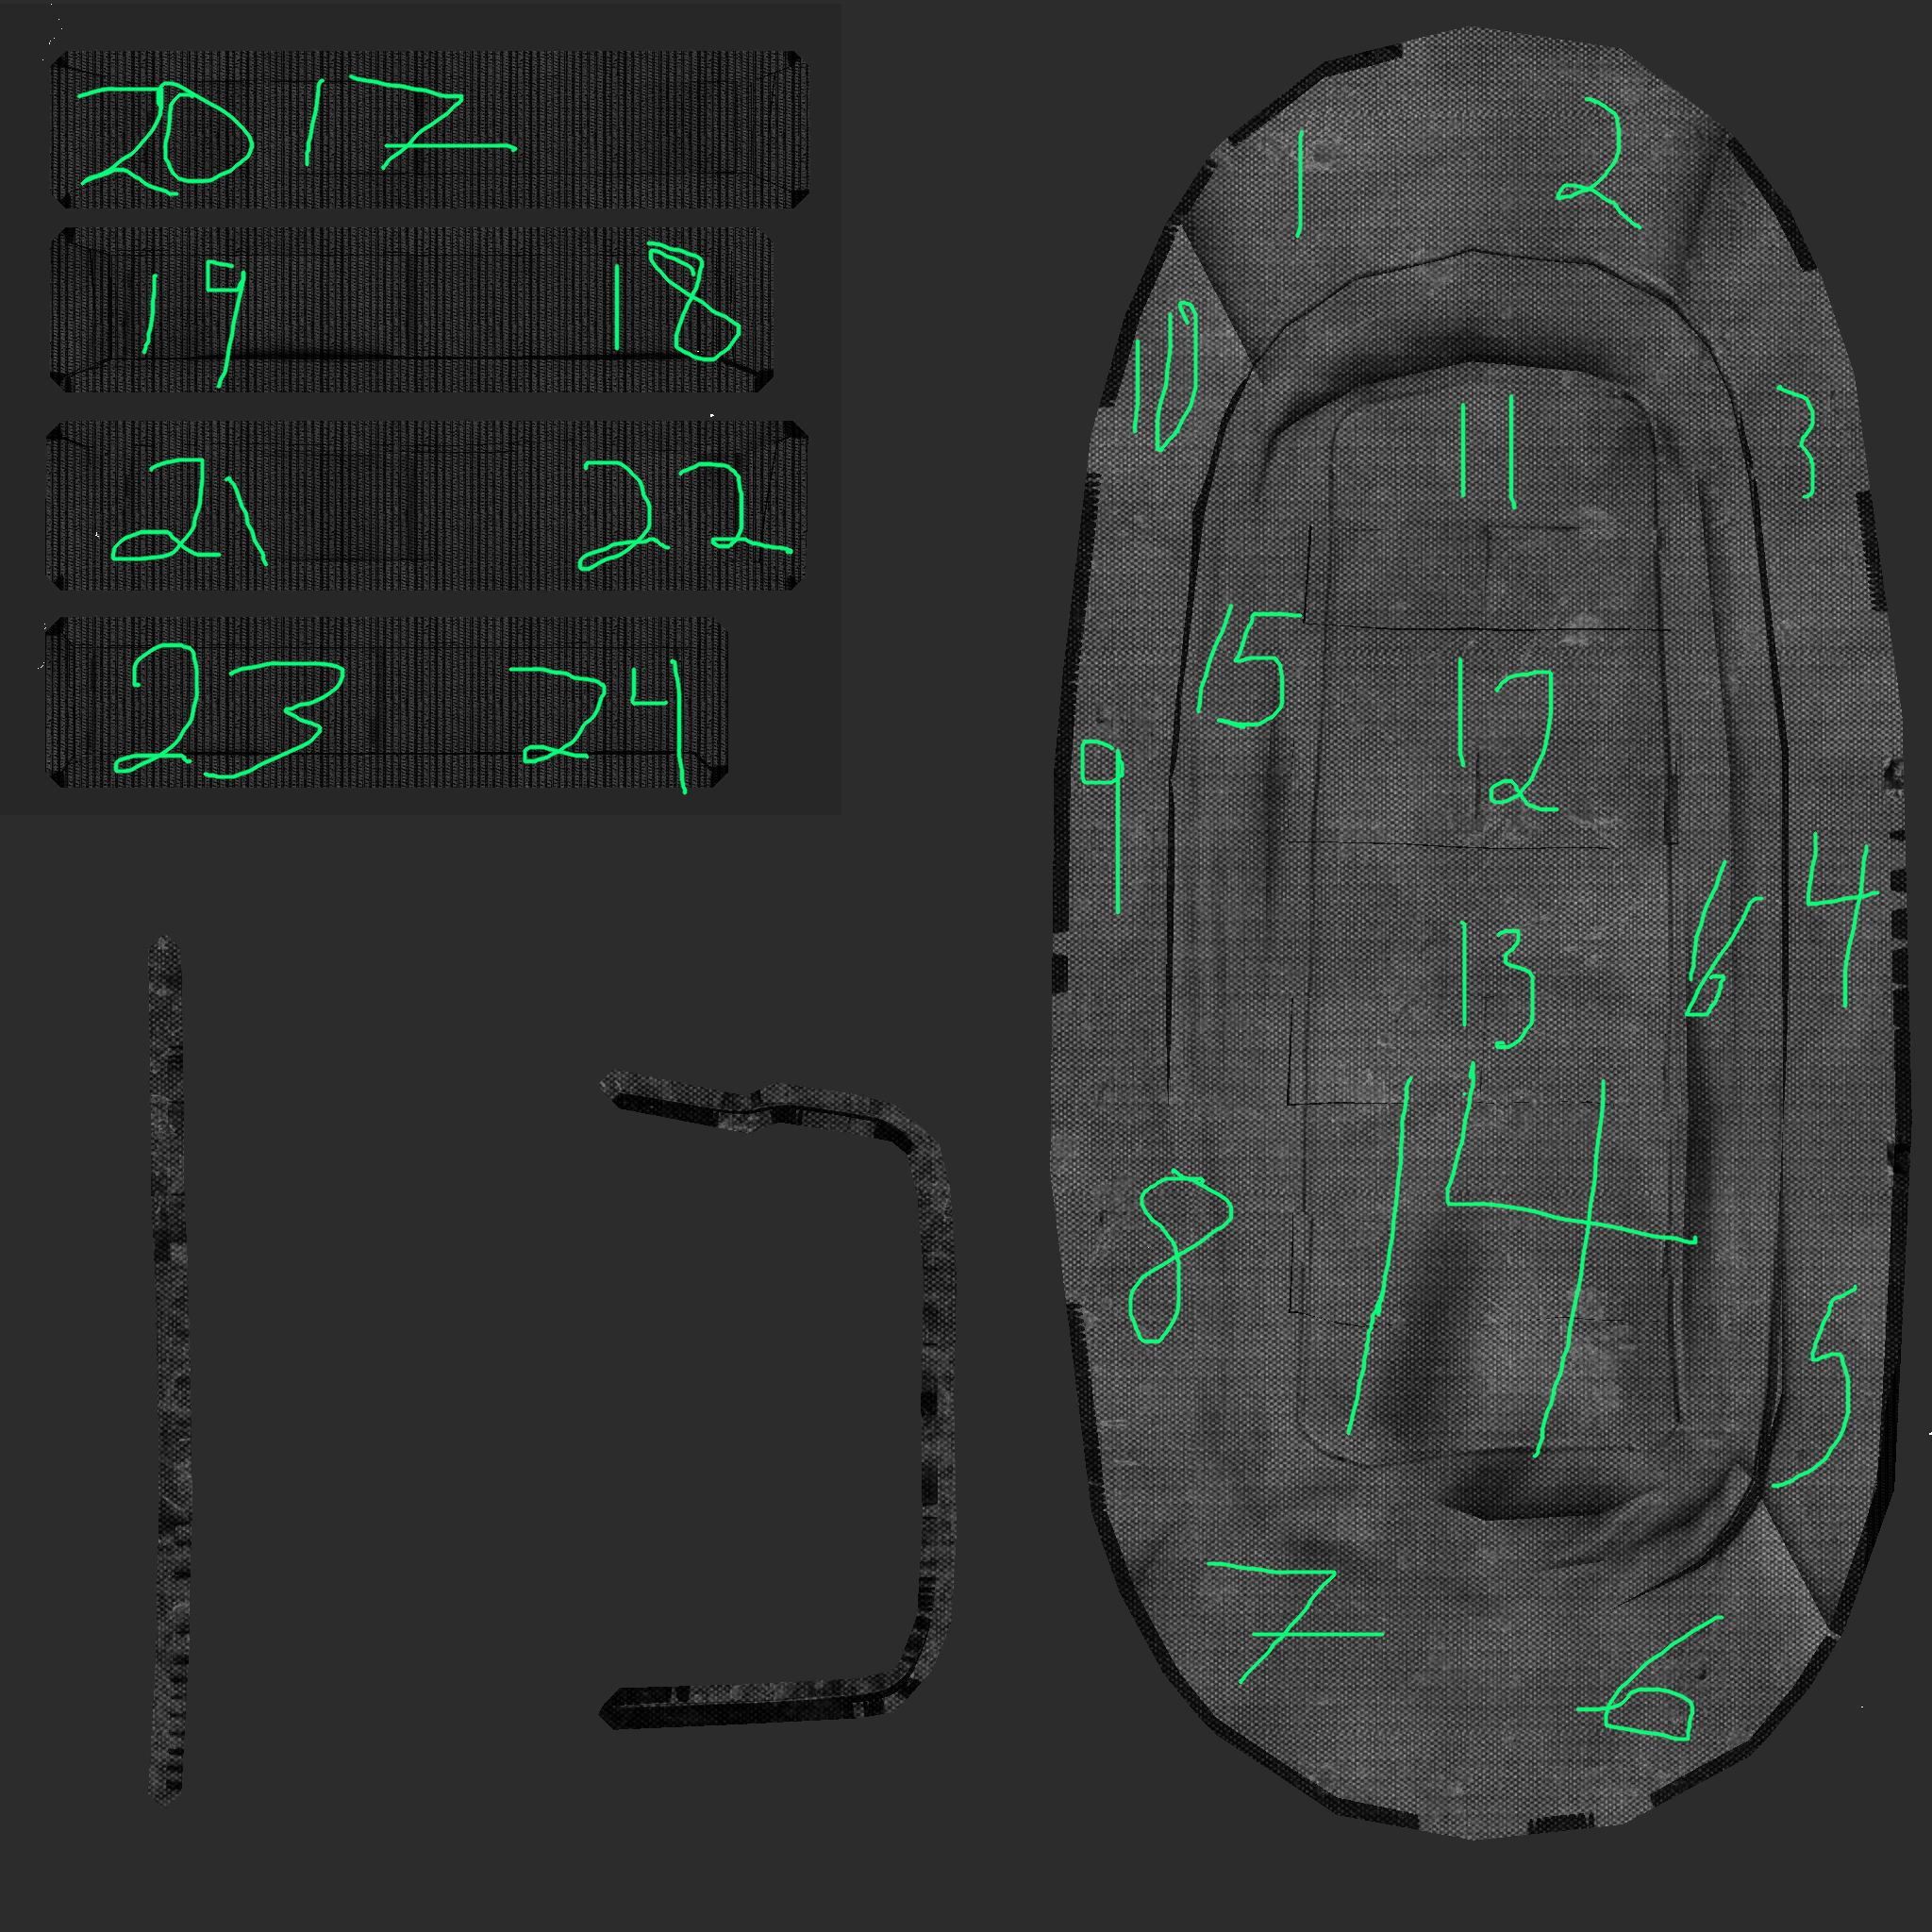 20 17
19 18
21 22
23 24
1 2
10 11 3
15 12
9 4
13 16
14
8
5
7 6